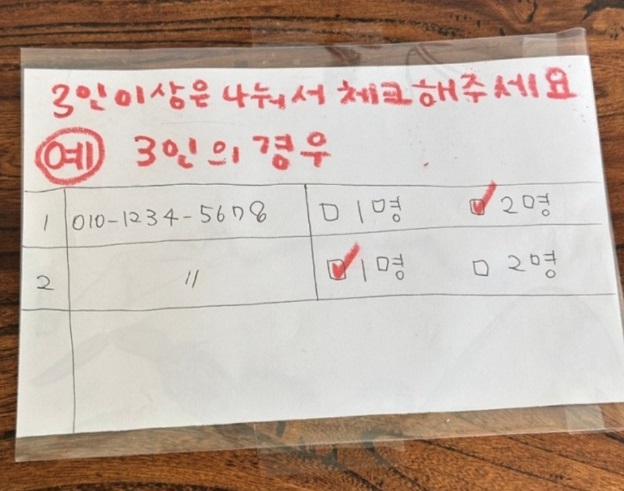 3인이상은 나눠서 체크해주세요
예 3인의 경우
1 010-1234-5678 □ 1명 ☑ 2명
2 〃 ☑ 1명 □ 2명